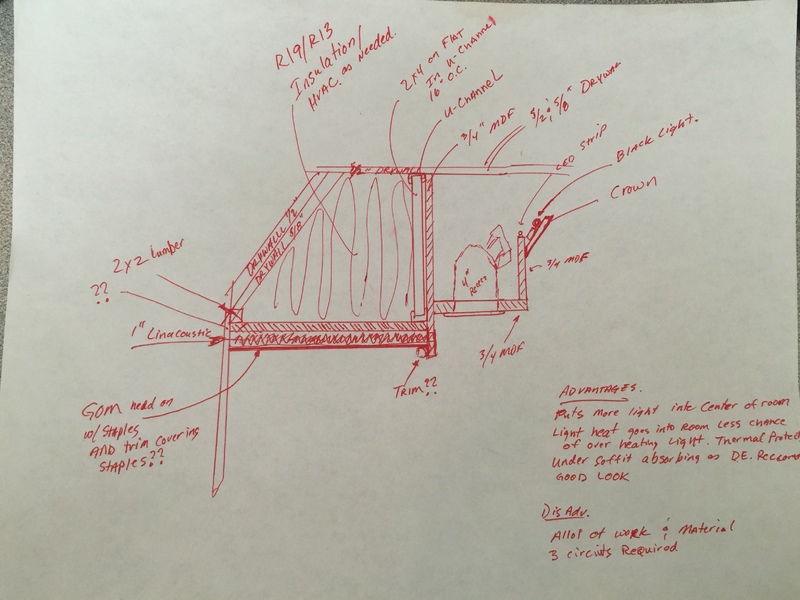 R19/R13
Insulation/
HVAC. as needed.
2x4 on FLAT
In U-Channel
16" O.C.
U-Channel
3/4" MDF
5/8" DRYWALL
LED STRIP
BLACK Light.
Crown
5/8" DRYWALL
DRYWALL 1/2
DRYWALL 5/8"
2x2 Lumber
??
1" Linacoustic
4"
3/4 MDF
3/4 MDF
TRIM??
GOM need on
w/ STAPLES
AND trim covering
STAPLES??
ADVANTAGES.
Puts more light into Center of room
Light heat goes into Room Less chance
of over heating Light. Thermal Protect
Under Soffit absorbing as D.E. Recom
GOOD LOOK
DisAdv.
Allot of work & Material
3 circuits Required